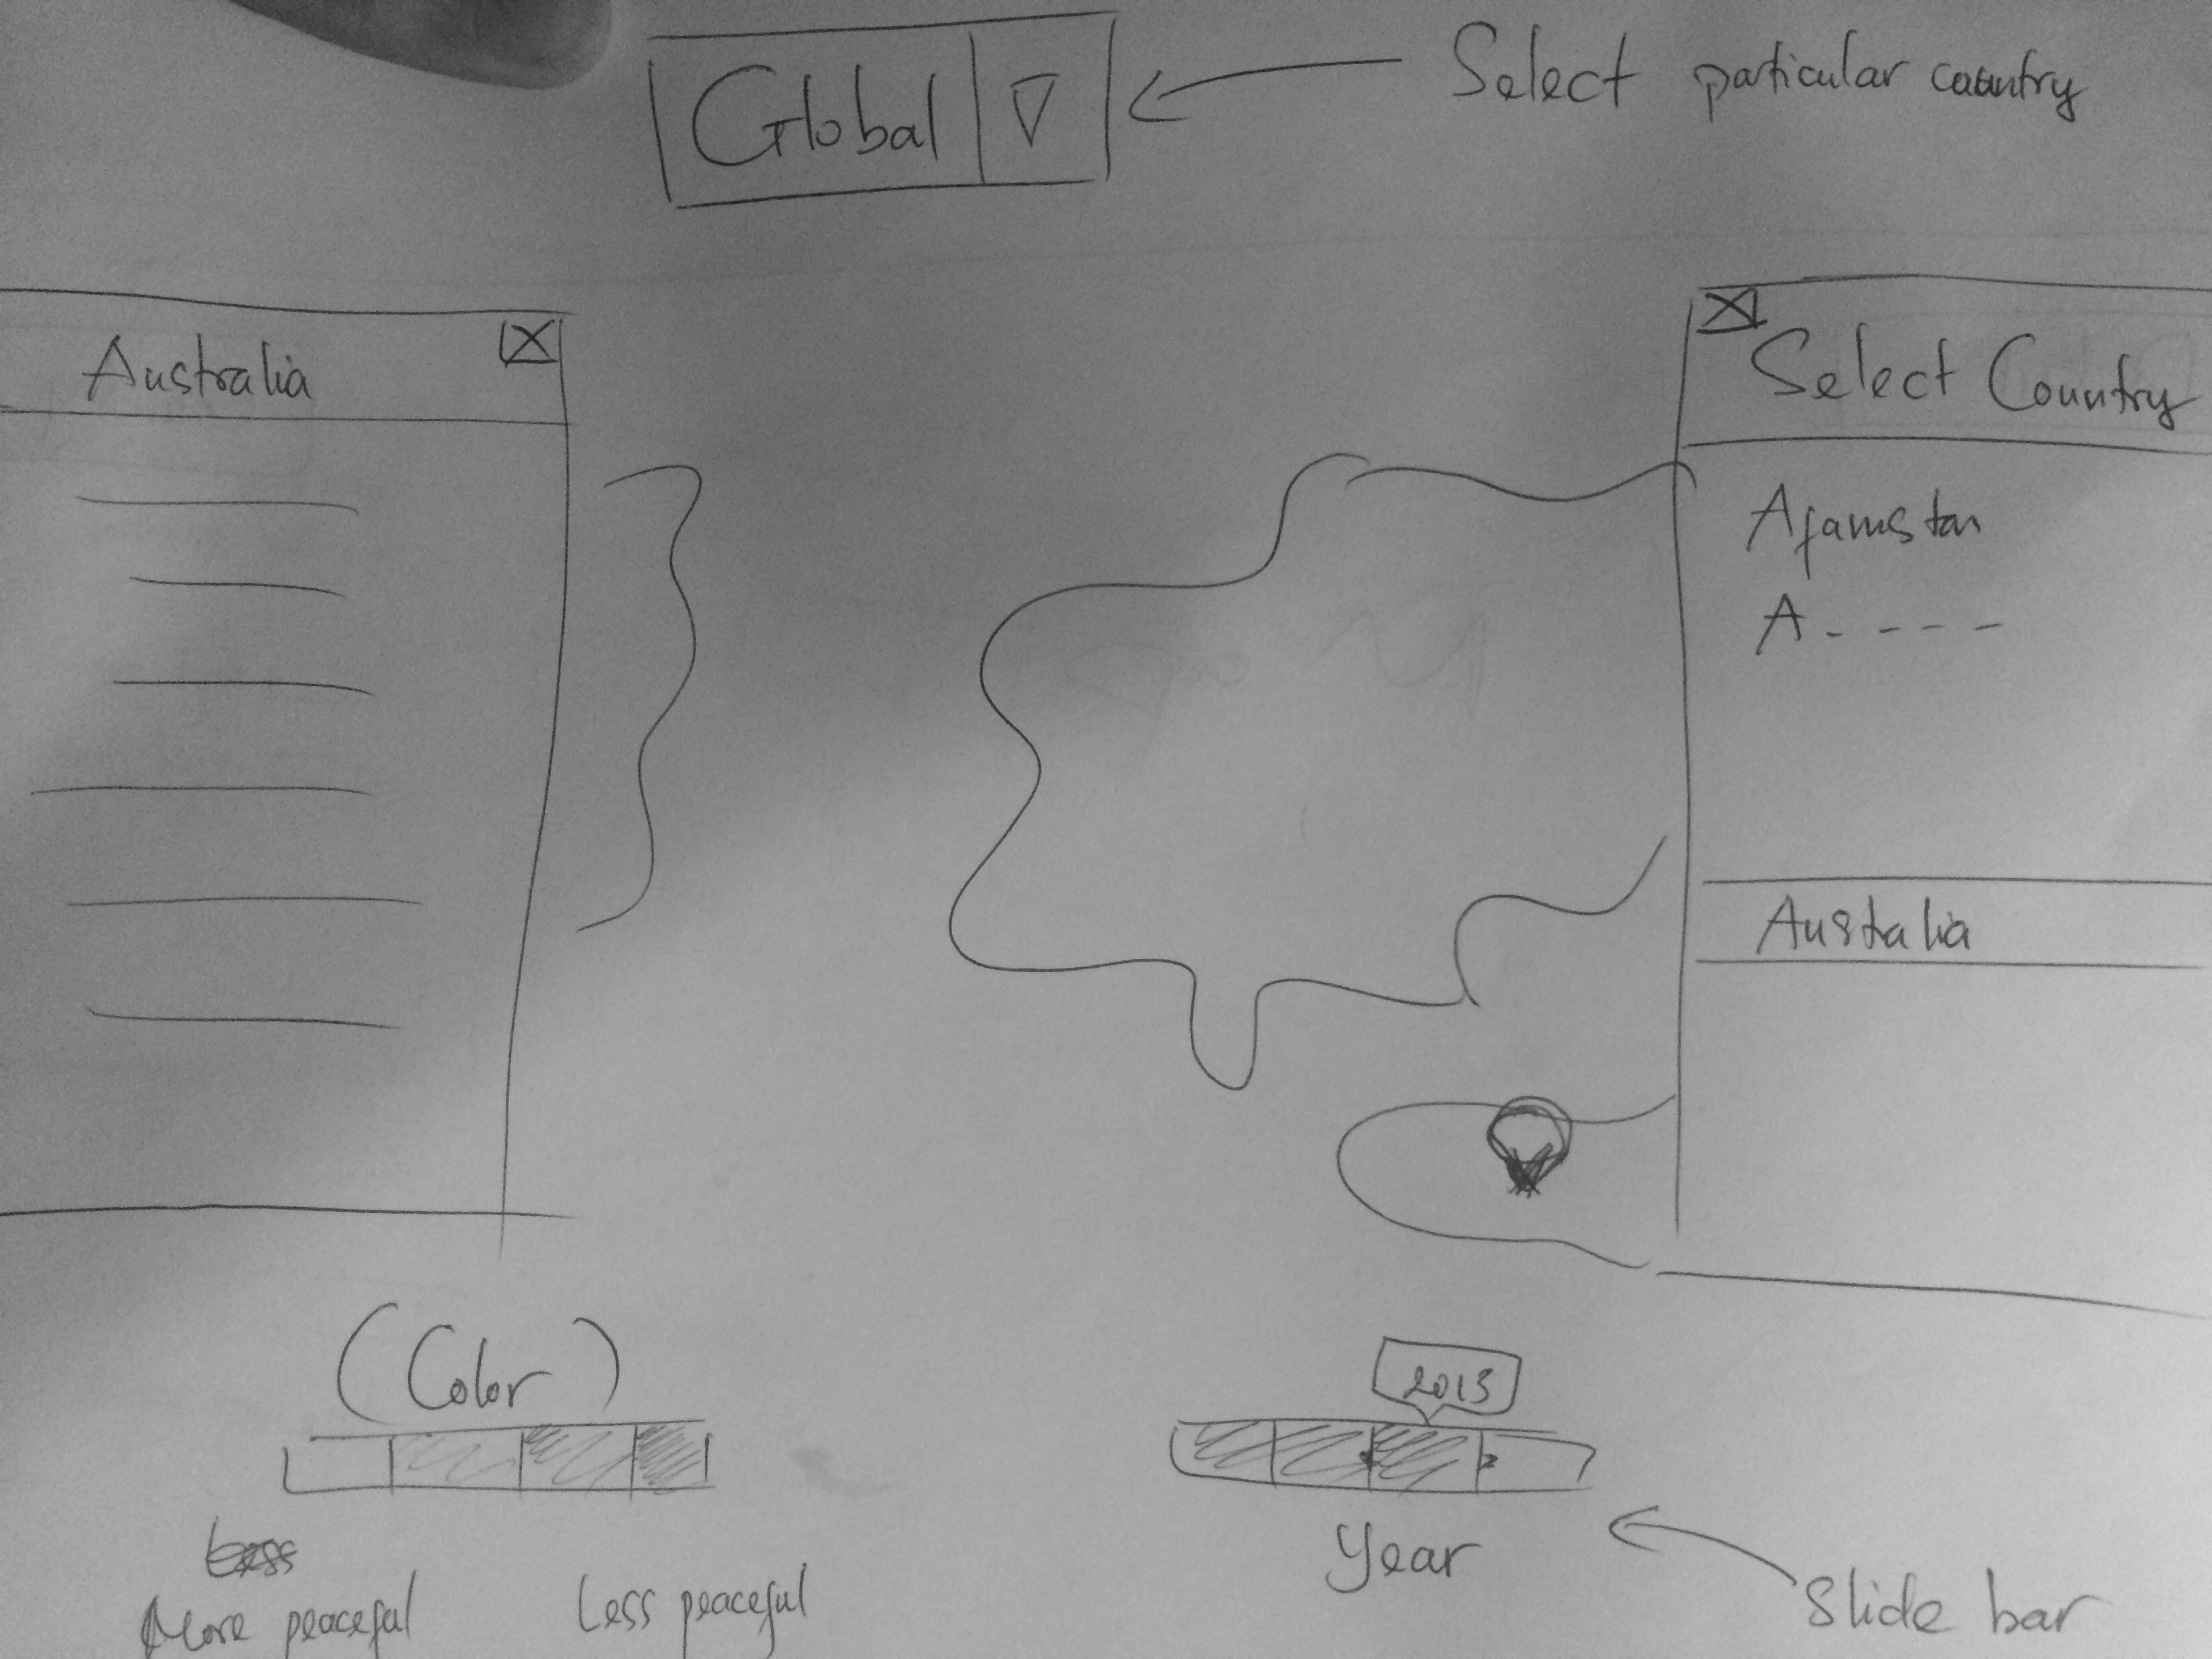 Global
Select particular country
Australia
Select Country
Afamstan
A - - - -
Australia
(Color)
2013
Less
More peaceful
Less peaceful
Year
Slide bar